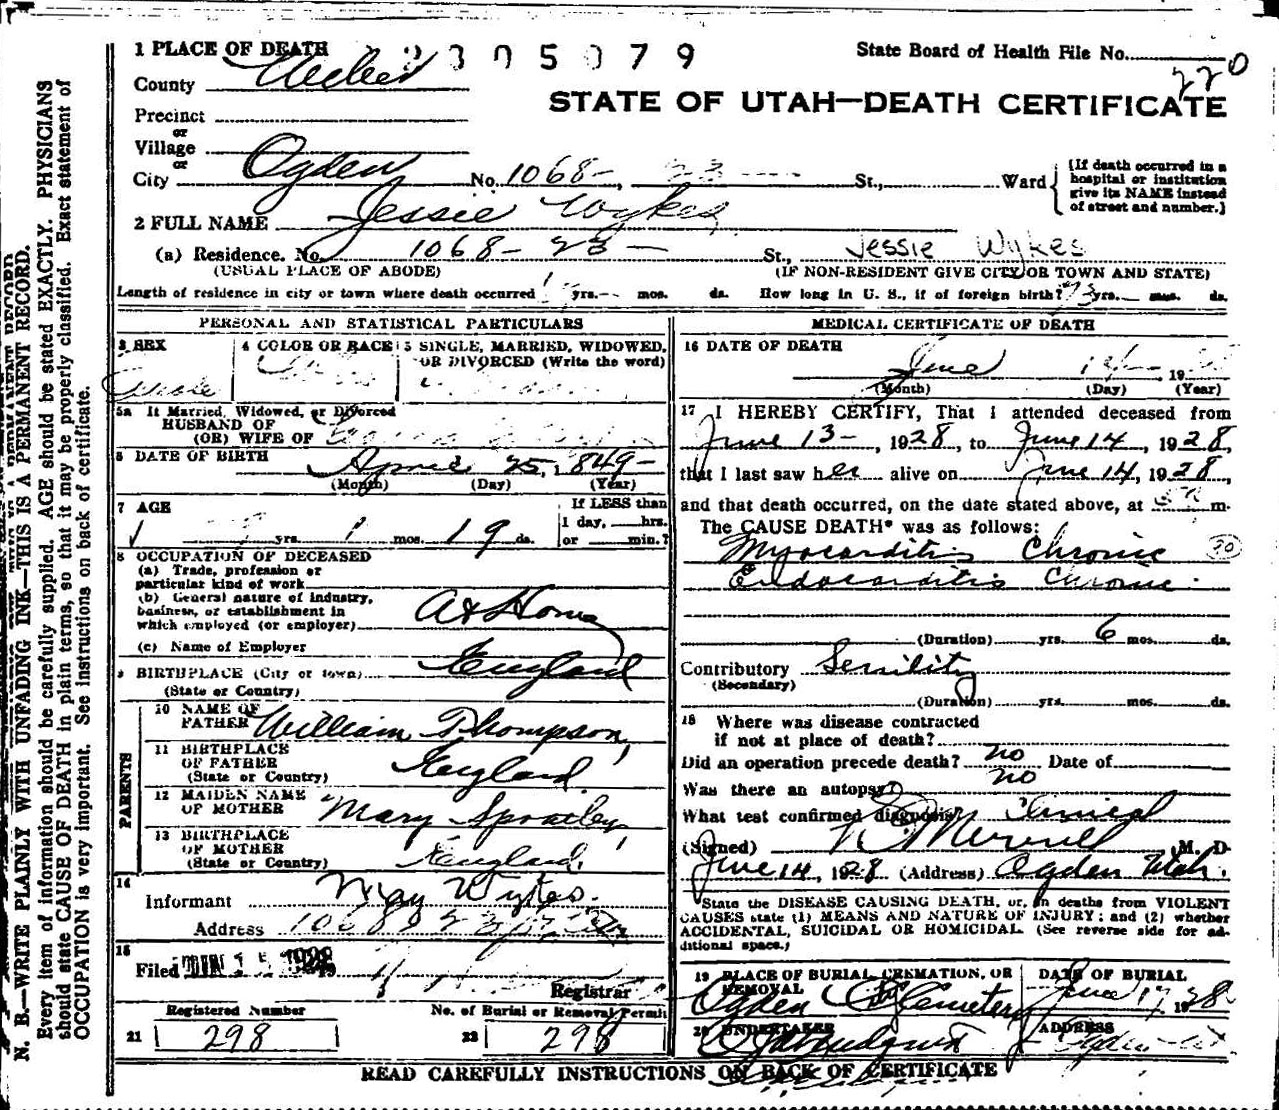 1 PLACE OF DEATH
2305079
State Board of Health File No.
220
County Weber
STATE OF UTAH—DEATH CERTIFICATE
Precinct
or
Village
or
City Ogden No. 1068- 23 St., Ward
(If death occurred in a hospital or institution give its NAME instead of street and number.)
2 FULL NAME Jessie Wykes
(a) Residence. No. 1068-23- St., Jessie Wykes
(USUAL PLACE OF ABODE) (IF NON-RESIDENT GIVE CITY OR TOWN AND STATE)
Length of residence in city or town where death occurred yrs. mos. ds. How long in U. S., if of foreign birth? yrs. mos. ds.
PERSONAL AND STATISTICAL PARTICULARS
3 SEX
4 COLOR OR RACE
5 SINGLE, MARRIED, WIDOWED, OR DIVORCED (Write the word)
5a If Married, Widowed, or Divorced
HUSBAND OF
(OR) WIFE OF
6 DATE OF BIRTH April 25, 1849-
(Month) (Day) (Year)
7 AGE
yrs. 1 mos. 19 ds.
If LESS than
1 day, hrs.
or min.?
8 OCCUPATION OF DECEASED
(a) Trade, profession or
particular kind of work
(b) General nature of industry,
business, or establishment in
which employed (or employer) At Home
(c) Name of Employer
9 BIRTHPLACE (City or town) England
(State or Country)
PARENTS
10 NAME OF
FATHER William Thompson
11 BIRTHPLACE
OF FATHER England
(State or Country)
12 MAIDEN NAME
OF MOTHER Mary Spratley
13 BIRTHPLACE
OF MOTHER England
(State or Country)
14
Informant May Wykes
Address 1068 23
15
Filed JUN 15 1928
Registrar
Registered Number
21 298
No. of Burial or Removal Permit
22 298
MEDICAL CERTIFICATE OF DEATH
16 DATE OF DEATH
June 14 19
(Month) (Day) (Year)
17 I HEREBY CERTIFY, That I attended deceased from
June 13-, 1928, to June 14, 1928,
that I last saw her alive on June 14, 1928,
and that death occurred, on the date stated above, at m.
The CAUSE DEATH* was as follows:
Myocarditis Chronic
90
Endocarditis Chronic
(Duration) yrs. 6 mos. ds.
Contributory Senility
(Secondary)
(Duration) yrs. mos. ds.
18 Where was disease contracted
if not at place of death?
Did an operation precede death? no Date of
Was there an autopsy? no
What test confirmed diagnosis? Clinical
(Signed) Merrill, M. D.
June 14, 1928 (Address) Ogden Utah.
*State the DISEASE CAUSING DEATH, or, in deaths from VIOLENT
CAUSES state (1) MEANS AND NATURE OF INJURY; and (2) whether
ACCIDENTAL, SUICIDAL OR HOMICIDAL. (See reverse side for ad-
ditional space.)
19 PLACE OF BURIAL, CREMATION, OR
REMOVAL
Ogden City Cemetery
DATE OF BURIAL
June 17 1928
20 UNDERTAKER
ADDRESS
Ogden
READ CAREFULLY INSTRUCTIONS ON BACK OF CERTIFICATE
N. B.—WRITE PLAINLY WITH UNFADING INK—THIS IS A PERMANENT RECORD.
Every item of information should be carefully supplied. AGE should be stated EXACTLY. PHYSICIANS
should state CAUSE OF DEATH in plain terms, so that it may be properly classified. Exact statement of
OCCUPATION is very important. See instructions on back of certificate.